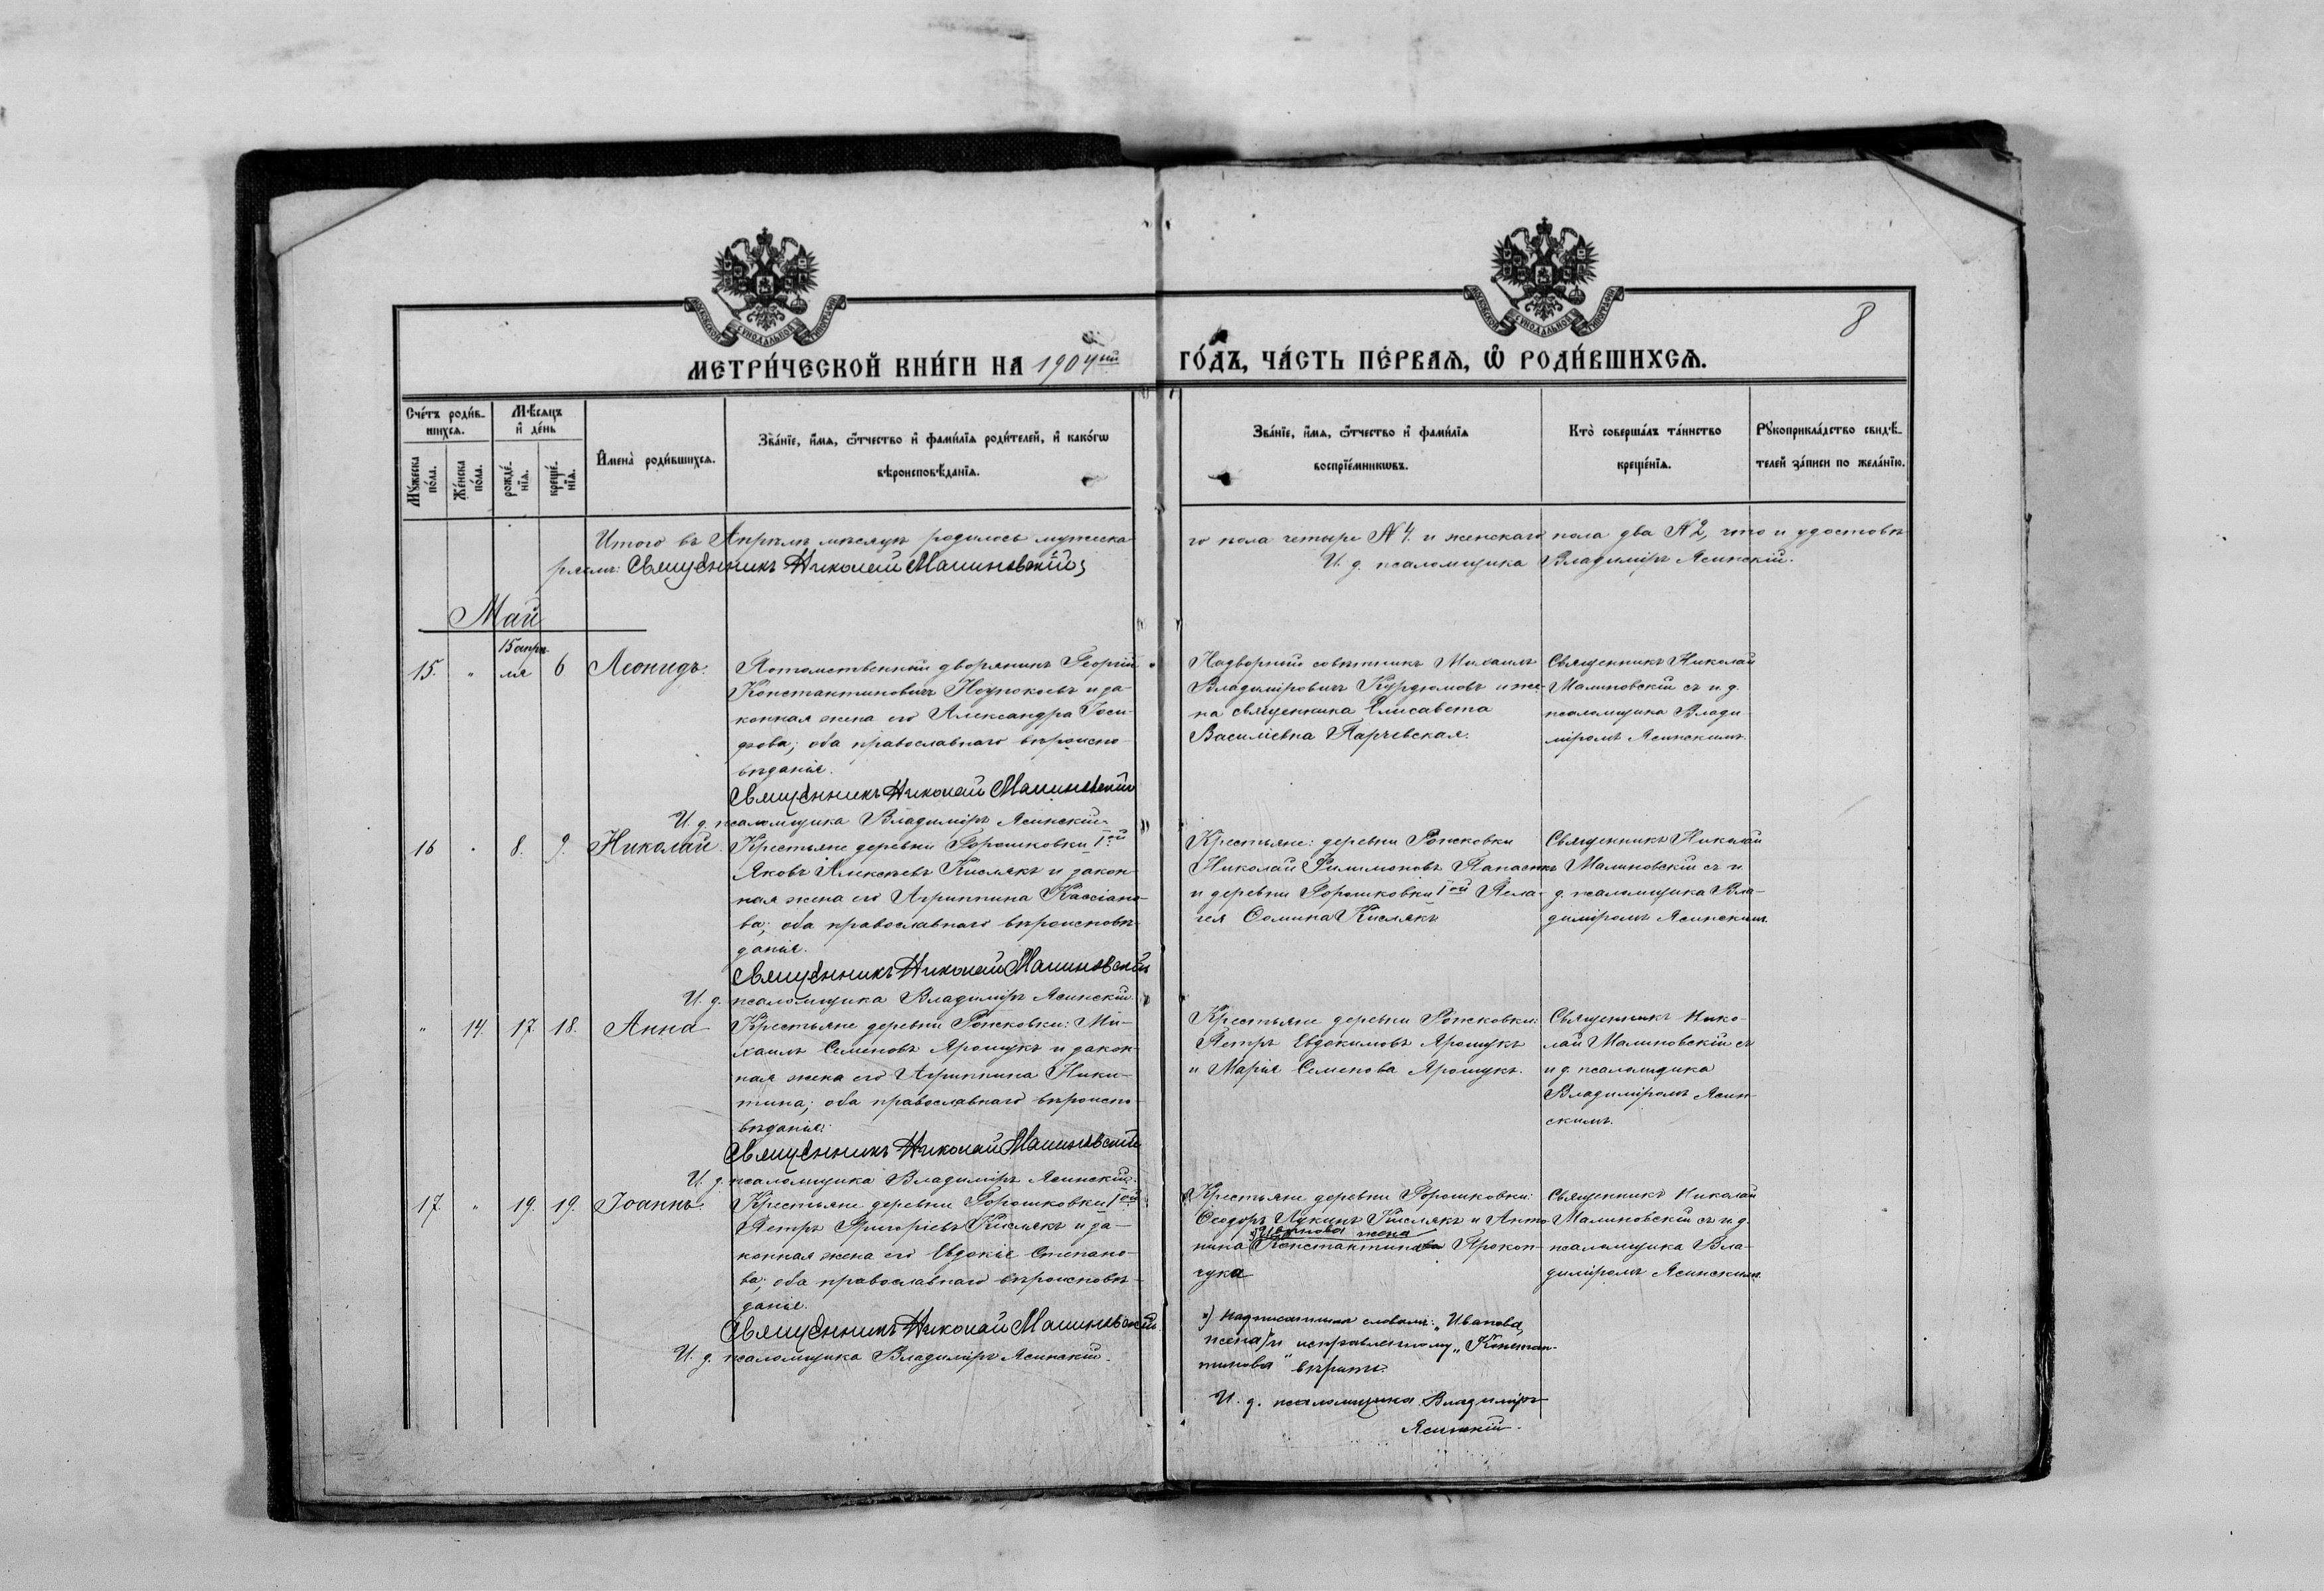 8
МЕТРИ́ЧЕСКОЙ КНИ́ГИ НА 1904ый ГО́ДЪ, ЧА́СТЬ ПЕ́РВАѦ, Ѿ РОДИ́ВШИХСѦ.
Сче́тъ роди́вшихсѧ.
Мѣ́сѧцъ и҆ де́нь
Мꙋ́жеска по́ла.
Же́нска по́ла.
рожде́нїѧ.
креще́нїѧ.
И҆мена̀ роди́вшихсѧ.
Зва́нїе, и҆́мѧ, ѻ҆́тчество и҆ фами́лїѧ роди́телей, и҆ како́гѡ
вѣроисповѣ́данїѧ.
Зва́нїе, и҆́мѧ, ѻ҆́тчество и҆ фами́лїѧ
воспрїе́мникѡвъ.
Кто̀ соверша́лъ та́инство
креще́нїѧ.
Рꙋкоприкла́дство свидѣ́-
телей за́писи по жела́нїю.
Итого въ Апрѣлѣ мѣсяцѣ родилось мужска
го пола четыре №4. и женскаго пола два №2, что и удостовѣ
ряемъ: Священникъ Николай Малиновскій
И. д. псаломщика Владиміръ Ясинскій.
Май
15. " 15 апрѣ
ля 6 Леонидъ.
Потомственный дворянинъ Георгій
Константиновичъ и за-
конная жена его Александра Іоси-
фова; оба православнаго вѣроиспо-
вѣданія.
Священникъ Николай Малиновскій
И. д. псаломщика Владиміръ Ясинскій.
Надворный совѣтникъ Михаилъ
Владиміровичъ Курдюмовъ и же-
на священника Елисавета
Василіевна Парчевская.
Священникъ Николай
Малиновскій съ и. д.
псаломщика Влади-
міромъ Ясинскимъ.
16 " 8. 9. Николай.
Крестьяне деревни Горошковки Iой
Яковъ Алексѣевъ Кислякъ и закон-
ная жена его Агриппина Кассіано-
ва; оба православнаго вѣроисповѣ-
данія.
Священникъ Николай Малиновскій
И. д. псаломщика Владиміръ Ясинскій.
Крестьяне: деревни Ропсковки
Николай Филимоновъ
и деревни Горошковки Iой Пела-
гея Ѳомина Кислякъ
Священникъ Николай
Малиновскій съ и.
д. псаломщика Вла-
диміромъ Ясинскимъ.
" 14. 17. 18. Анна
Крестьяне деревни Ропсковки: Ми-
хаилъ Семеновъ Ярощукъ и закон-
ная жена его Агриппина Ники-
тина; оба православнаго вѣроиспо-
вѣданія.
Священникъ Николай Малиновскій
И. д. псаломщика Владиміръ Ясинскій.
Крестьяне деревни Ропсковки:
Петръ Евдокимовъ Ярощукъ
и Марія Семенова Ярощукъ.
Священникъ Нико-
лай Малиновскій съ
и д. псаломщика
Владиміромъ Ясин-
скимъ.
17. " 19. 19. Іоаннъ.
Крестьяне деревни Горошковки Iой
Петръ Григоріевъ Кислякъ и за-
конная жена его Евдокія Степано-
ва; оба православнаго вѣроисповѣ-
данія.
Священникъ Николай Малиновскій
И. д. псаломщика Владиміръ Ясинскій.
Крестьяне деревни Горошковки:
Ѳеодоръ Лукинъ Кислякъ и Анто-
*) Иванова жена
нина Константинова Прокоп-
чука
Священникъ Николай
Малиновскій съ и. д.
псаломщика Вла-
диміромъ Ясинскимъ.
*) Надписаннымъ словамъ: „Иванова,
жена" и исправленному „Констан-
тинова" вѣрить.
И. д. псаломщика Владиміръ
Ясинскій.